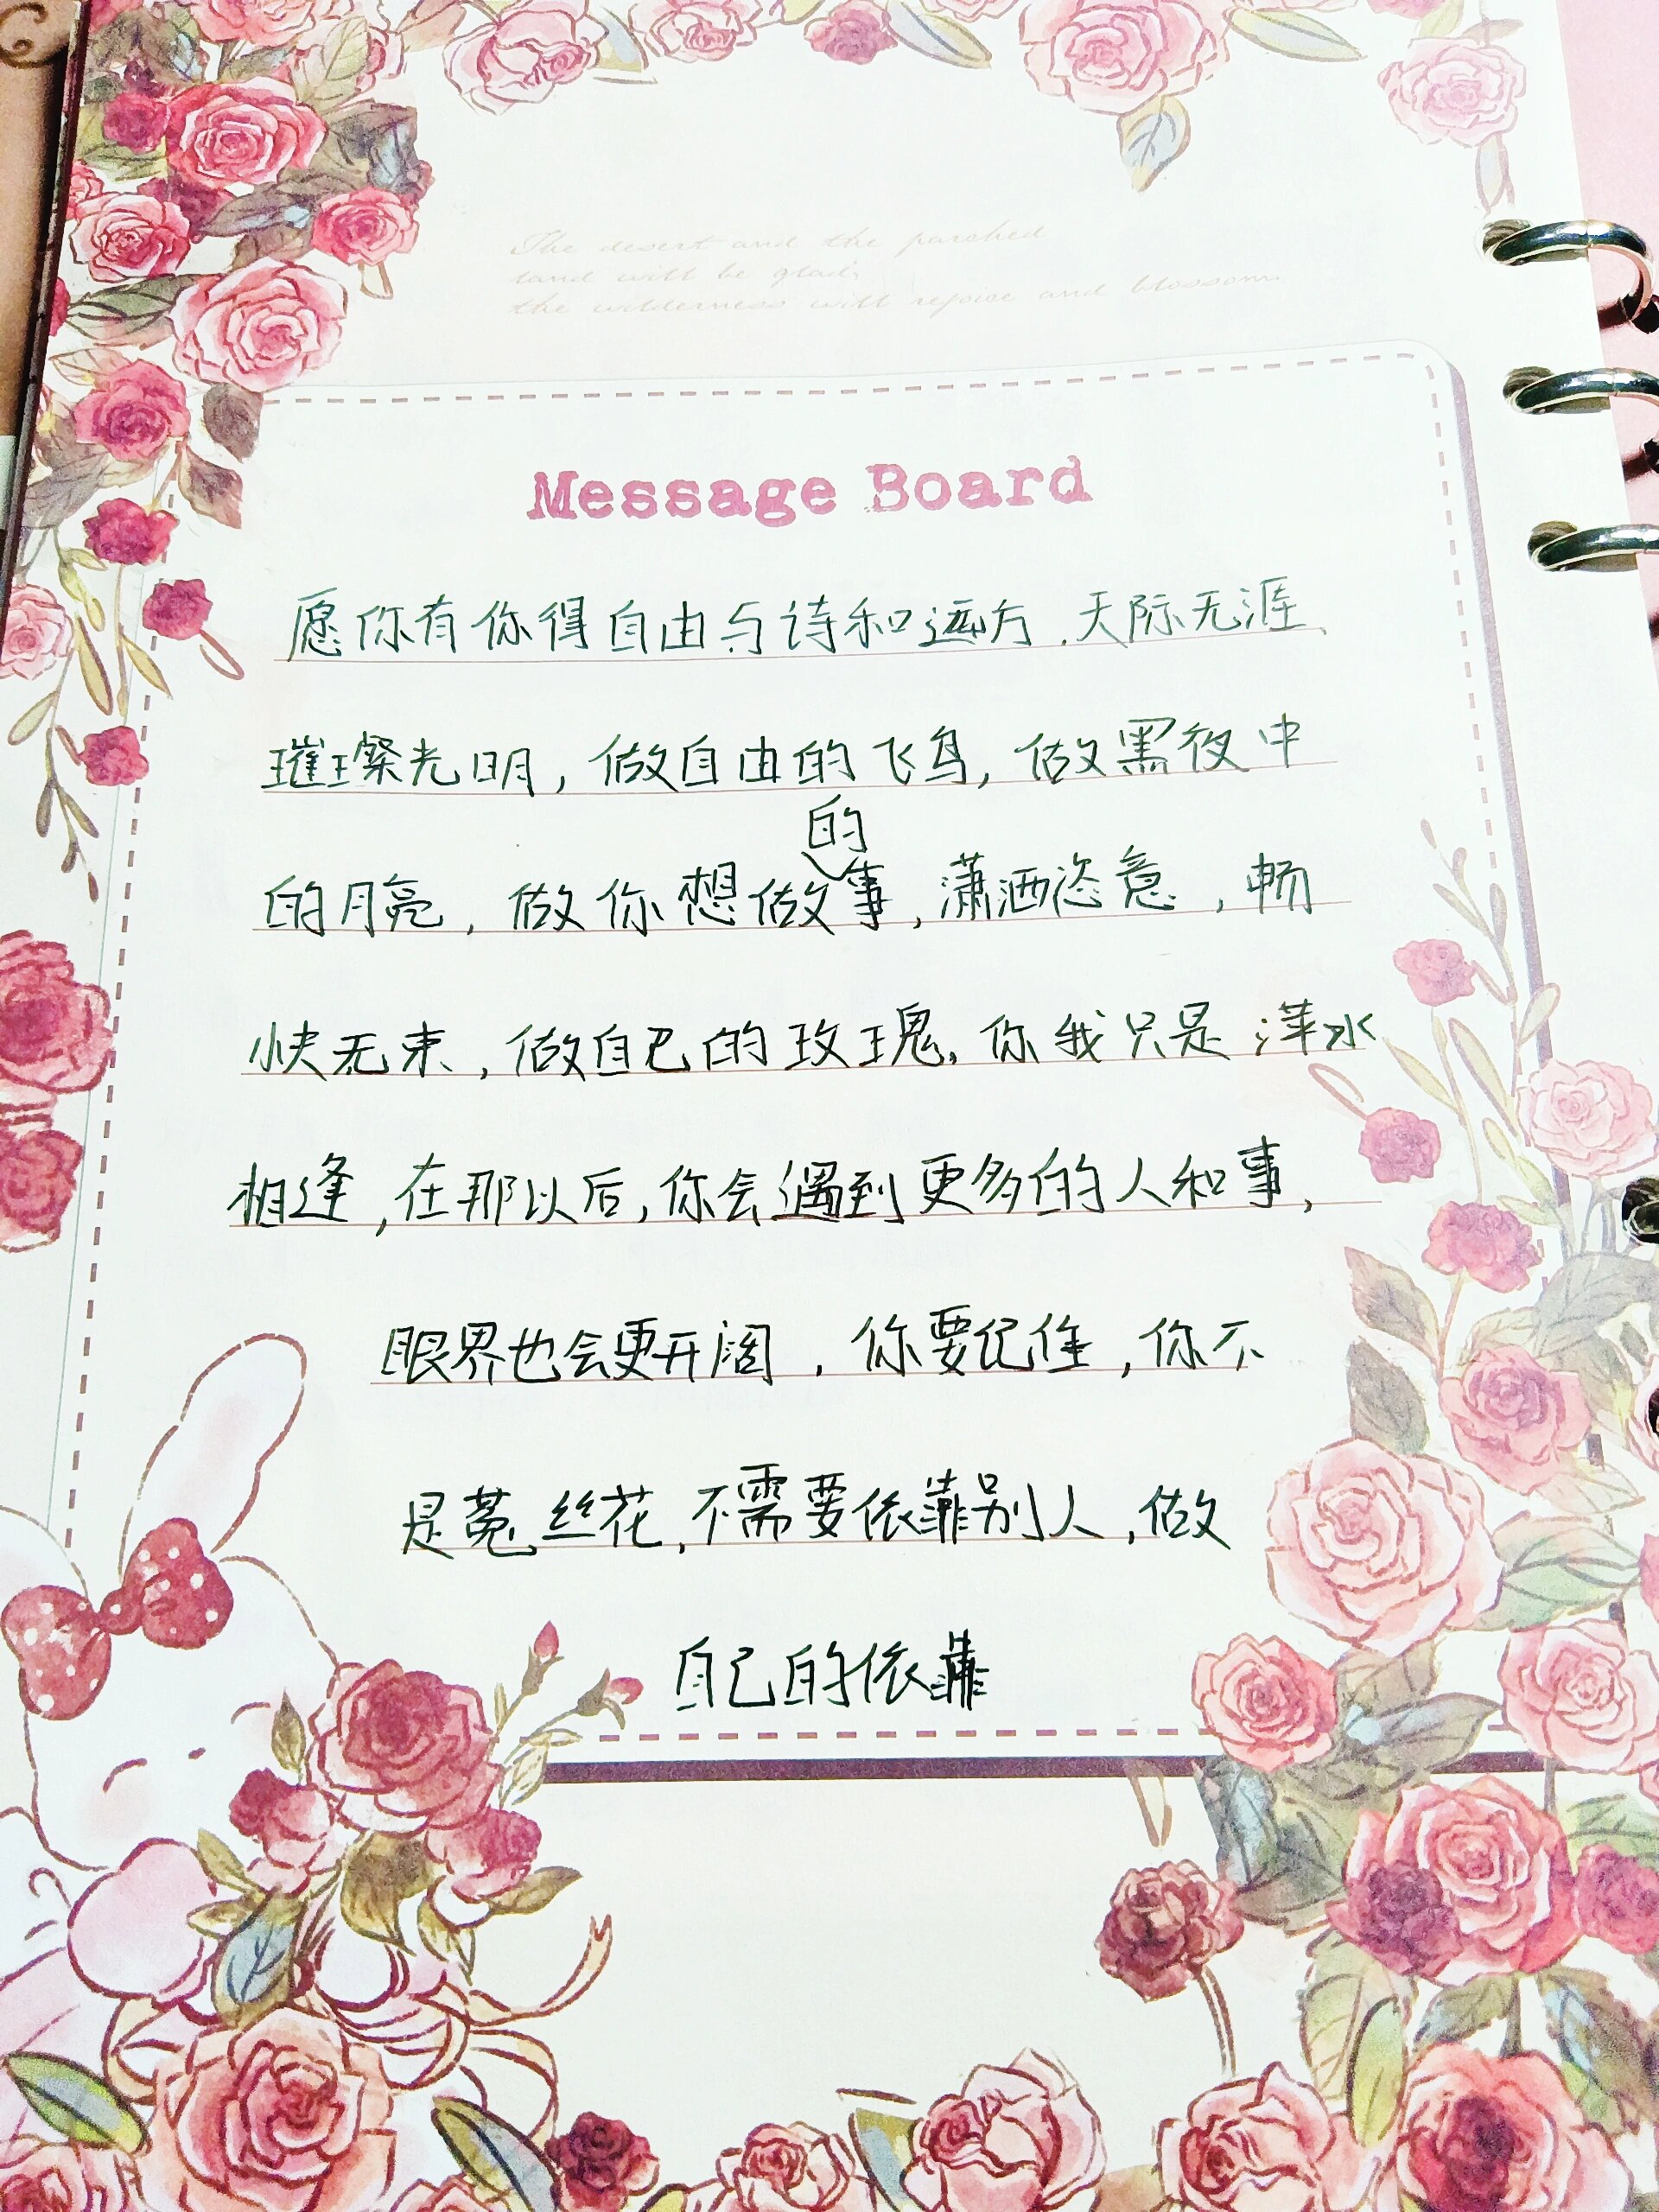 The desert and the parched
land will be glad;
the wilderness will rejoice and blossom.
Message Board
愿你有你得自由与诗和远方,天际无涯、
璀璨光明,做自由的飞鸟,做黑夜中
的月亮,做你想做的事,潇洒恣意,畅
快无束,做自己的玫瑰,你我只是萍水
相逢,在那以后,你会遇到更多的人和事,
眼界也会更开阔,你要记住,你不
是菟丝花,不需要依靠别人,做
自己的依靠